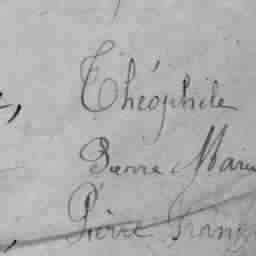 Théophile
Pierre Marie
Pierre Franç